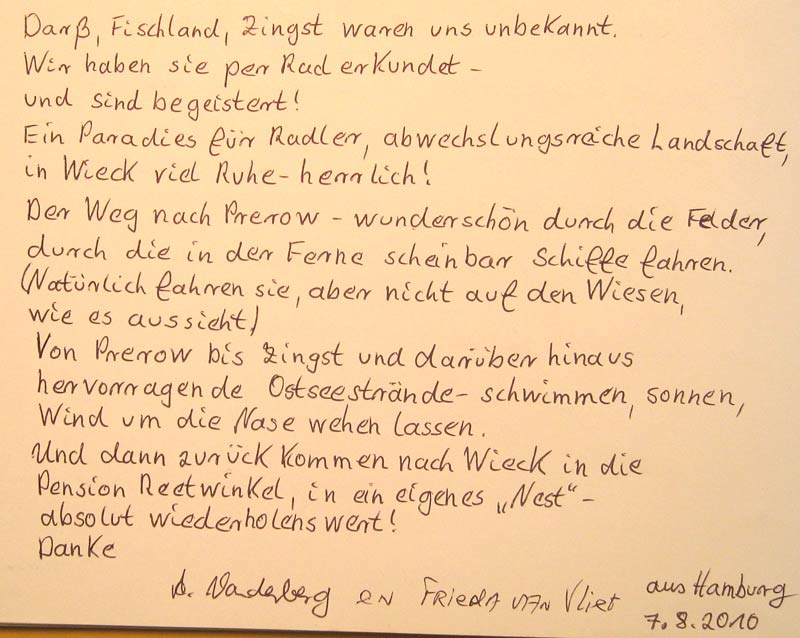 Darß, Fischland, Zingst waren uns unbekannt.
Wir haben sie per Rad erkundet -
und sind begeistert!
Ein Paradies für Radler, abwechslungsreiche Landschaft,
in Wieck viel Ruhe - herrlich!
Der Weg nach Prerow - wunderschön durch die Felder,
durch die in der Ferne scheinbar Schiffe fahren.
(Natürlich fahren sie, aber nicht auf den Wiesen,
wie es aussieht)
Von Prerow bis Zingst und darüber hinaus
hervorragende Ostseestrände - schwimmen, sonnen,
Wind um die Nase wehen lassen.
Und dann zurück kommen nach Wieck in die
Pension Reetwinkel, in ein eigenes „Nest“ -
absolut wiederholenswert!
Danke
en Frieda van Vliet aus Hamburg
7.8.2010